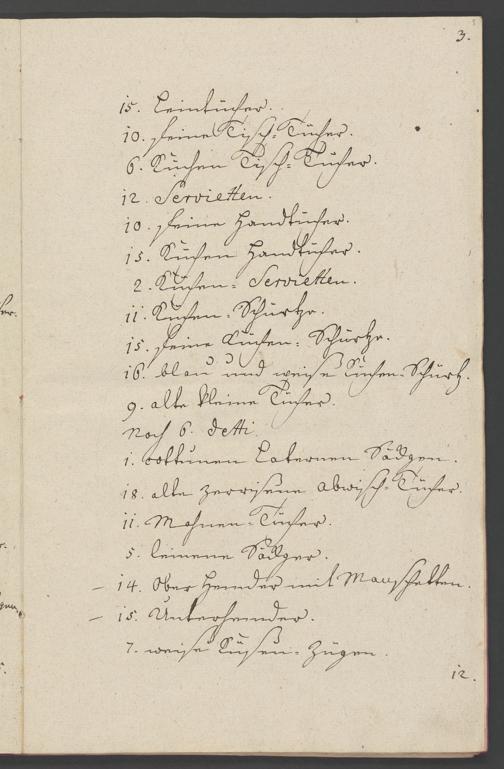 3.
15. Leintücher.
10. feine Tisch-Tücher.
6. Küchen Tisch-Tücher.
12. Servietten.
10. feine Handtücher.
15. Küchen Handtücher.
2. Küchen-Servietten.
11. Küchen-Schürtze.
15. feine Küchen-Schürtze.
16. blau und weise Küchen-Schürtz.
9. alte kleine Tücher.
Noch 6. detti
1. cottunen Laternen Säckgen.
18. alte zerrisene abwisch-Tücher.
11. Tücher.
5. leinene Säckger.
– 14. Ober Hemder mit Manschetten.
– 15. Unterhemder.
7. weise Küssen-Zügen.
12.